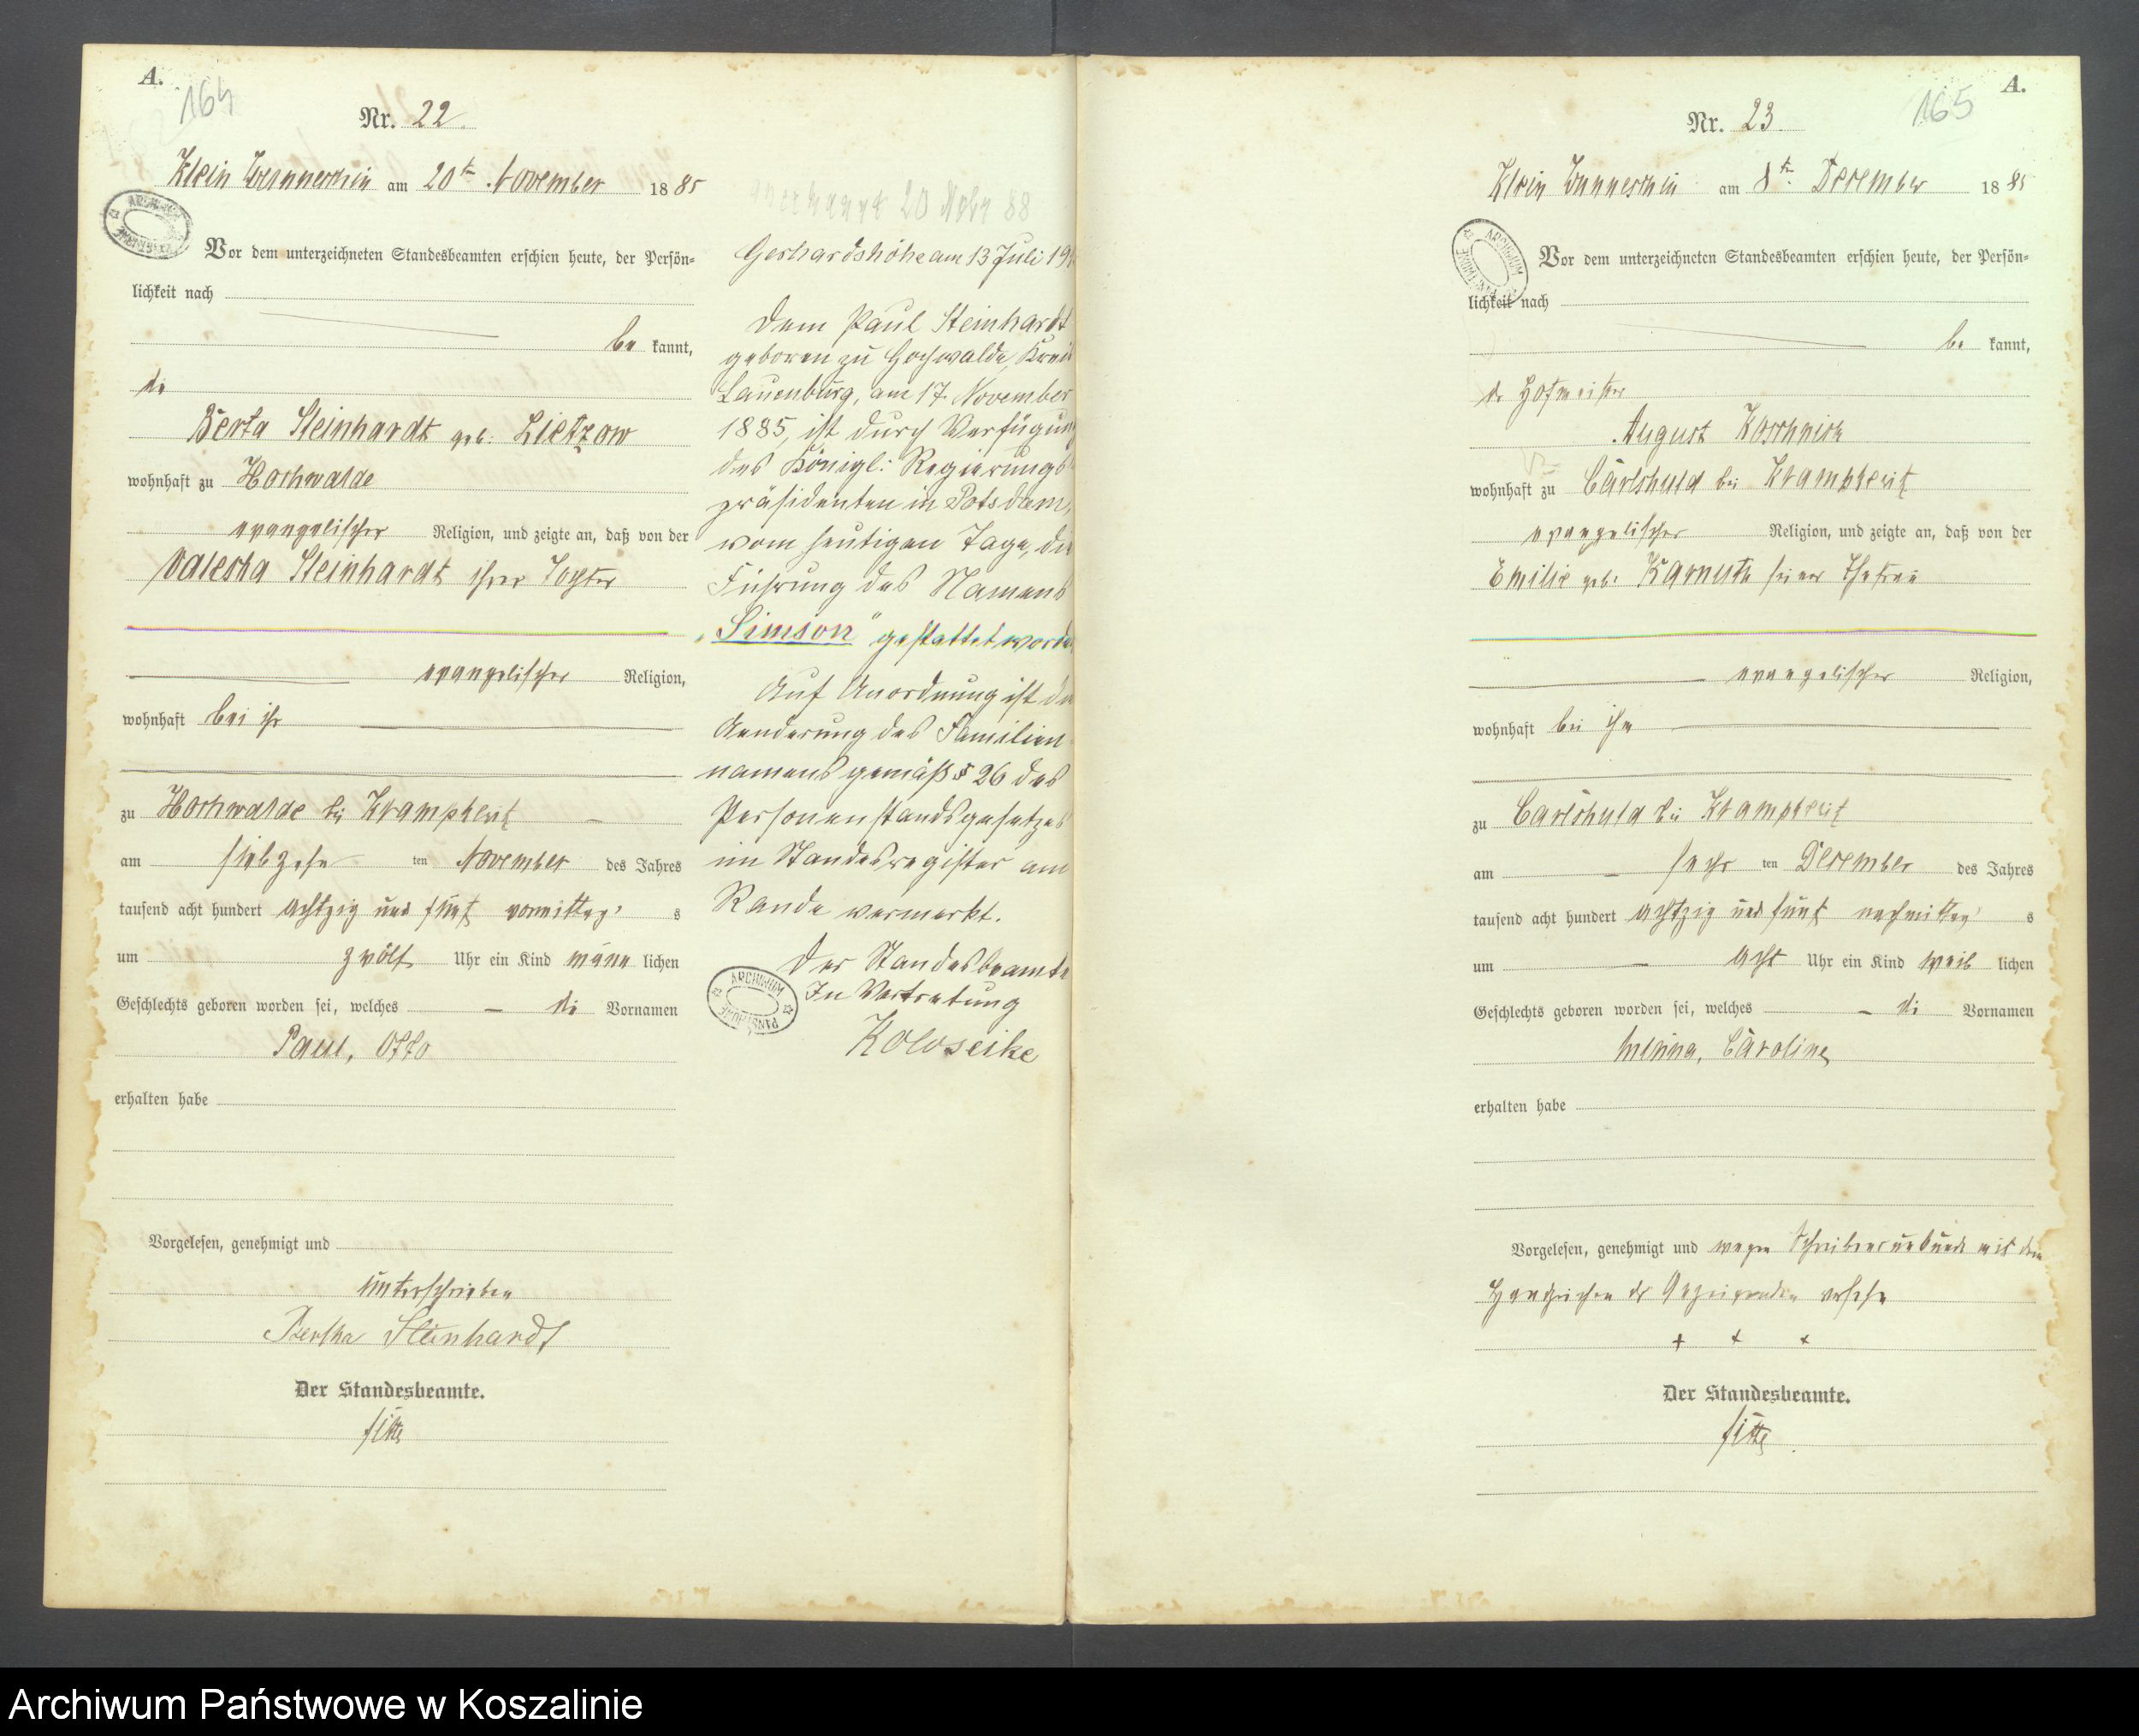 A.
164
Nr. 22.
Klein Wunneschin am 20ten November 1885
Vor dem unterzeichneten Standesbeamten erschien heute, der Persön-
lichkeit nach
be kannt,
die
Berta Steinhardt geb. Lietzow
wohnhaft zu Hochwalde
evangelischer Religion, und zeigte an, daß von der
Valeska Steinhardt ihrer Tochter
evangelischer Religion,
wohnhaft bei ihr
zu Hochwalde bei Krampkewitz
am siebzehn ten November des Jahres
tausend acht hundert achtzig und fünf vormittag s
um zwölf Uhr ein Kind männ lichen
Geschlechts geboren worden sei, welches die Vornamen
Paul, Otto
erhalten habe
Vorgelesen, genehmigt und
unterschrieben
Bertha Steinhardt
Der Standesbeamte.
20 Nobr 88
Gerhardshöhe am 13 Juli 19
Dem Paul Steinhardt
geboren zu Hochwalde, Kreis
Lauenburg, am 17. November
1885, ist durch Verfügung
des Königl: Regierungs
präsidenten in Potsdam,
vom heutigen Tage, die
Führung des Namens
„Simson" gestattet worden
Auf Anordnung ist die
Aenderung des Familien
namens gemäß § 26 des
Personenstandsgesetzes
im Standesregister am
Rande vermerkt.
Der Standesbeamte
In Vertretung
Koloseike
ARCHIWUM PAŃSTWOWE
A.
165
Nr. 23.
Klein Wunneschin am 8ten December 1885
Vor dem unterzeichneten Standesbeamten erschien heute, der Persön-
lichkeit nach
be kannt,
der Hofmeister
August Koschnick
wohnhaft zu Carlshuld bei Krampkewitz
evangelischer Religion, und zeigte an, daß von der
Emilie geb. Karnuth seiner Ehefrau
evangelischer Religion,
wohnhaft bei ihm
zu Carlshuld bei Krampkewitz
am sechs ten December des Jahres
tausend acht hundert achtzig und fünf nachmittag s
um acht Uhr ein Kind weib lichen
Geschlechts geboren worden sei, welches die Vornamen
Minna, Caroline
erhalten habe
Vorgelesen, genehmigt und wegen Schreibensunkunde mit dem
Handzeichen des Anzeigenden versehen
+ + +
Der Standesbeamte.
Archiwum Państwowe w Koszalinie